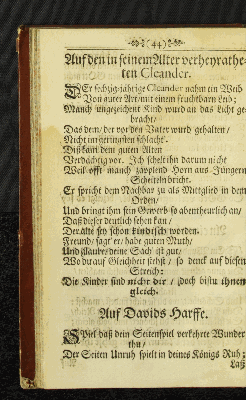 (44)
Auf den in seinem Alter verheyrathe-
ten Cleander.
DEr sechzig-jährige Cleander nahm ein Weib
Von guter Art/ mit einem fruchtbarn Leib;
Manch ungezeichnt Kind wurd an das Licht ge-
bracht/
Das dem/ der vor den Vater wurd gehalten/
Nicht im geringsten schlacht.
Diß kam dem guten Alten
Verdächtig vor. Ich schelt ihn darum nicht
Weil offt manch Horn aus Jungern
Scheiteln bricht.
Er spricht dem Nachbar zu als Mittglied in dem
Orden/
Und bringt ihm sein Gewerb so abentheurlich an/
Daß dieser deutlich sehen kan/
Der alte sey schon kindisch worden.
Freund/ sagt er/ habe guten Muth/
Und glaube/ deine Sach ist gut/
Wo du auf Gleichheit siehst/ so denck auf diesen
Streich:
Die Kinder sind nicht dir/ jdoch bistu ihnen
gleich.
Auf Davids Harffe.
SPiel daß dein Seitenspiel verkehrte Wunder
thu/
Der Seiten Unruh spielt in deines Königs Ruh;
Laß